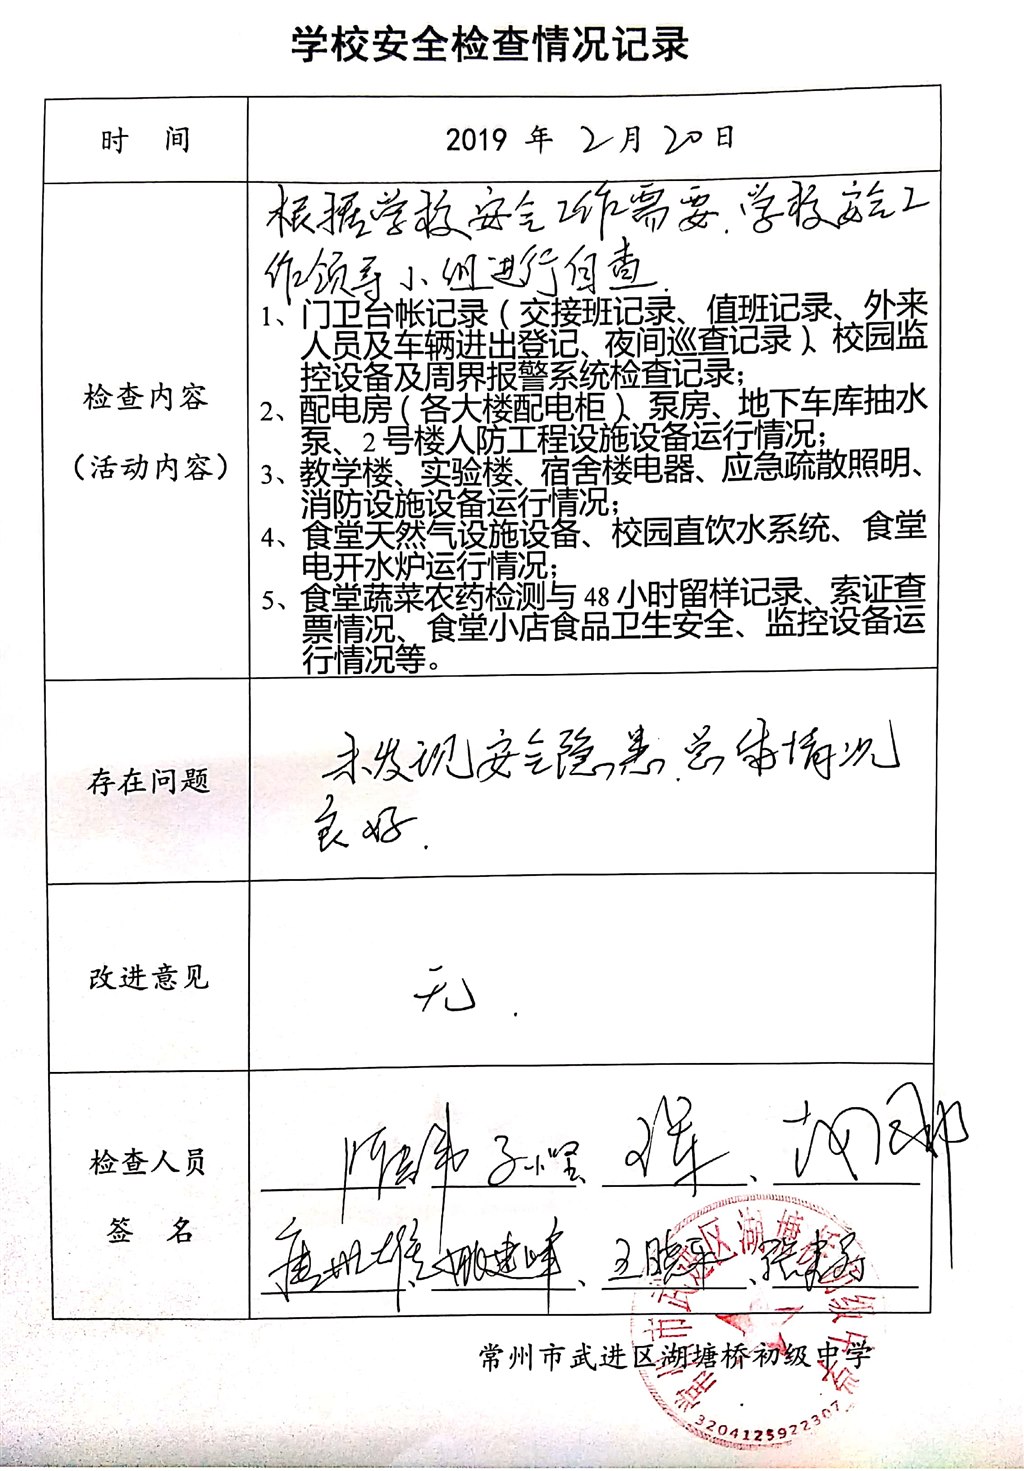 学校安全检查情况记录
时 间
2019 年 2月 20日
根据学校安全工作需要.学校安全工
作领导小组进行自查.
检查内容
（活动内容）
1、门卫台帐记录（交接班记录、值班记录、外来
人员及车辆进出登记、夜间巡查记录）、校园监
控设备及周界报警系统检查记录；
2、配电房（各大楼配电柜）、泵房、地下车库抽水
泵、2号楼人防工程设施设备运行情况；
3、教学楼、实验楼、宿舍楼电器、应急疏散照明、
消防设施设备运行情况；
4、食堂天然气设施设备、校园直饮水系统、食堂
电开水炉运行情况；
5、食堂蔬菜农药检测与48小时留样记录、索证查
票情况、食堂小店食品卫生安全、监控设备运
行情况等。
存在问题
未发现安全隐患.总体情况
良好.
改进意见
无.
检查人员
签 名
王晓乐
常州市武进区湖塘桥初级中学
常州市武进区湖塘桥初级中学
3204125922307